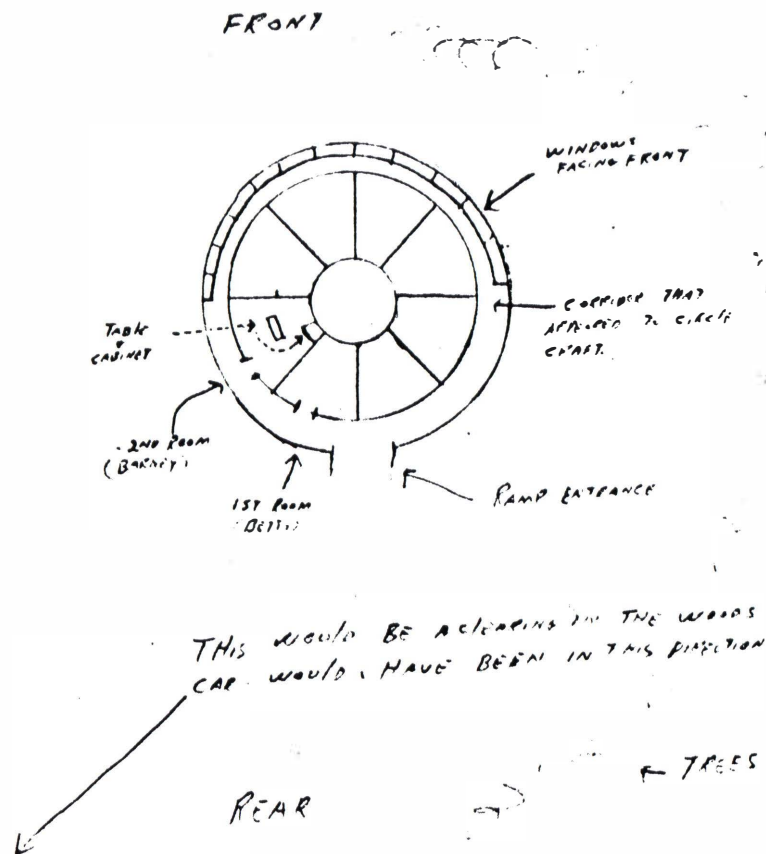 FRONT
WINDOWS
FACING FRONT
CORRIDOR THAT
APPEARED TO CIRCLE
CRAFT.
TABLE
+
CABINET
2ND ROOM
(BARNEY)
1ST ROOM
(BETTY)
RAMP ENTRANCE
THIS WOULD BE A CLEARING IN THE WOODS
CAR WOULD HAVE BEEN IN THIS DIRECTION
TREES
REAR